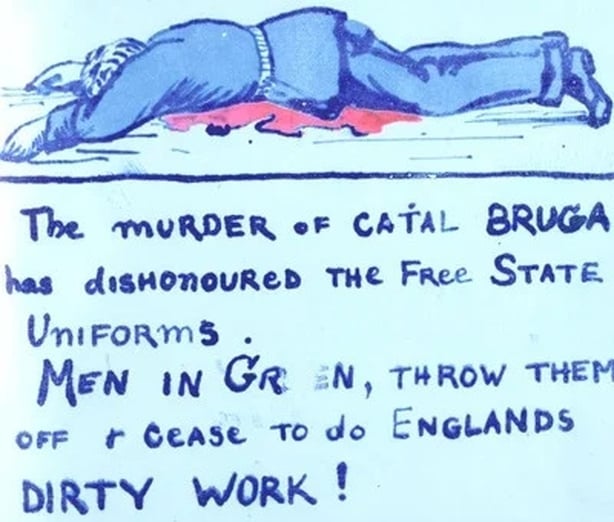 The MURDER OF CAṪAL BRUGA
has disHonouRED THe FRee STATE
UNIFORms .
MEN IN GREEN, THROW THEM
OFF & CEASE TO do ENGLANDS
DIRTY WORK !